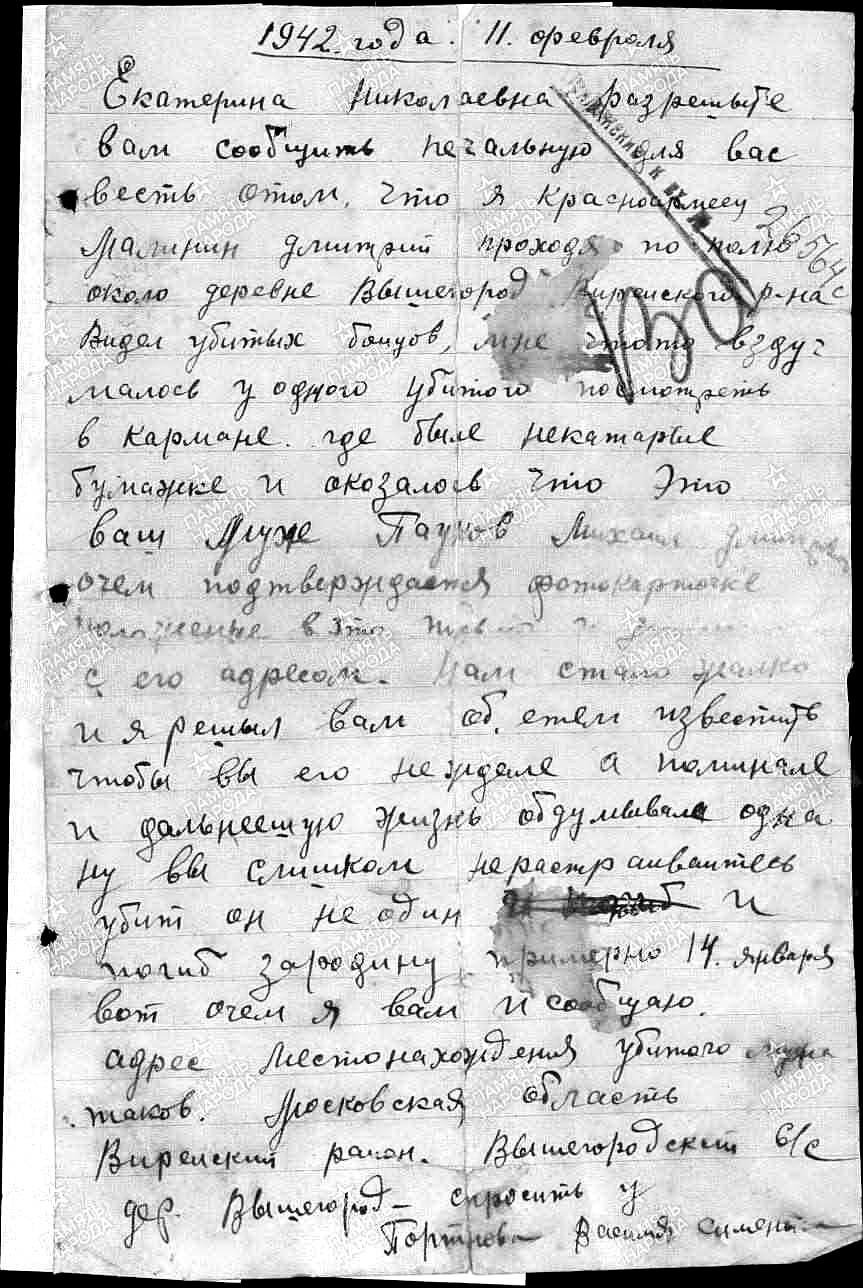 1942. года. 11. февраля
Екатерина Николаевна разрешыте
вам сообщить печальную для вас
весть отом, что я красноармеец
Малинин дмитрий проходя по полю
26564
около деревне Вышегород Вирейского р-на
Видел убитых бойцов, мне чтото вздуч
малось у одного убитого посмотреть
в кармане. где были некатарые
бумажке и окозалось что это
ваш муже Паунов Михаил
очем подтверждается фотокарточке
с его адресом. Нам стало жалко
и я решыл вам об етем известить
чтобы вы его не ждале а поминале
и дальнеешую жизнь обдумывала одна
ну вы слишком нерастраиваитесь
убит он не один и
погиб зародину примерно 14. января
вот очем я вам и сообщаю.
адрес местонахождения убитого мужа
таков. Московская область
Вирейский район. Вышегородский с/с
дер. Вышегород – спросить у
Портнова Василия
ПАМЯТЬ НАРОДА